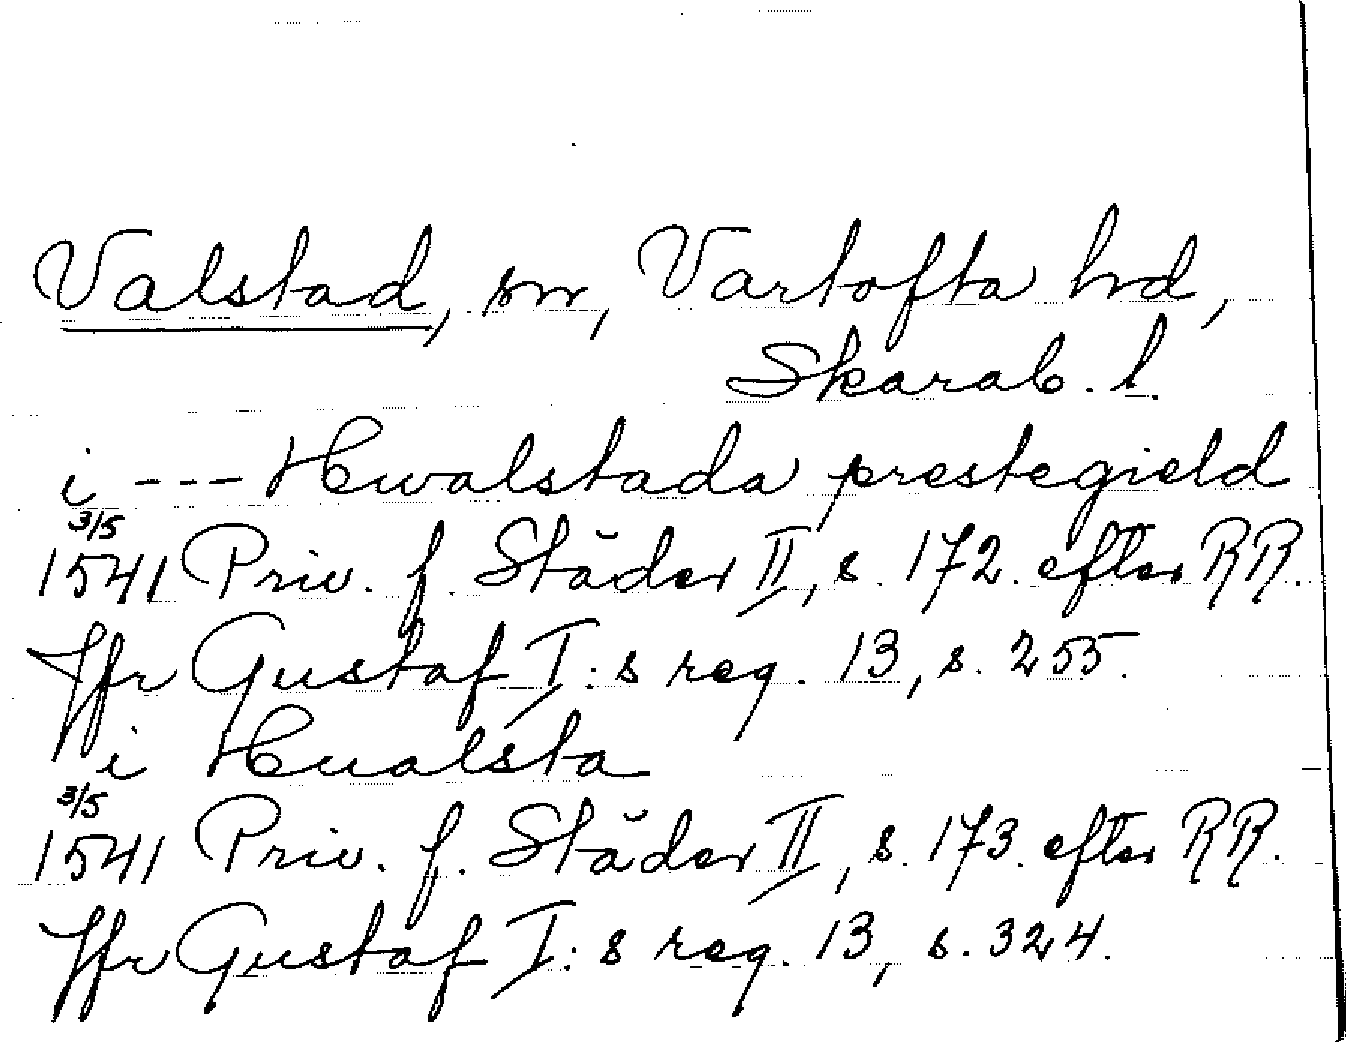 Valstad, sn, Vartofta hd,
Skarab. l.
i --- Hwalstada prestegield
3/5
1541 Priv. f. Städer II, s. 172. efter RR.
Jfr Gustaf I:s reg. 13, s. 255.
i Hualsta
3/5
1541 Priv. f. Städer II, s. 173. efter RR.
Jfr Gustaf I:s reg. 13, s. 324.